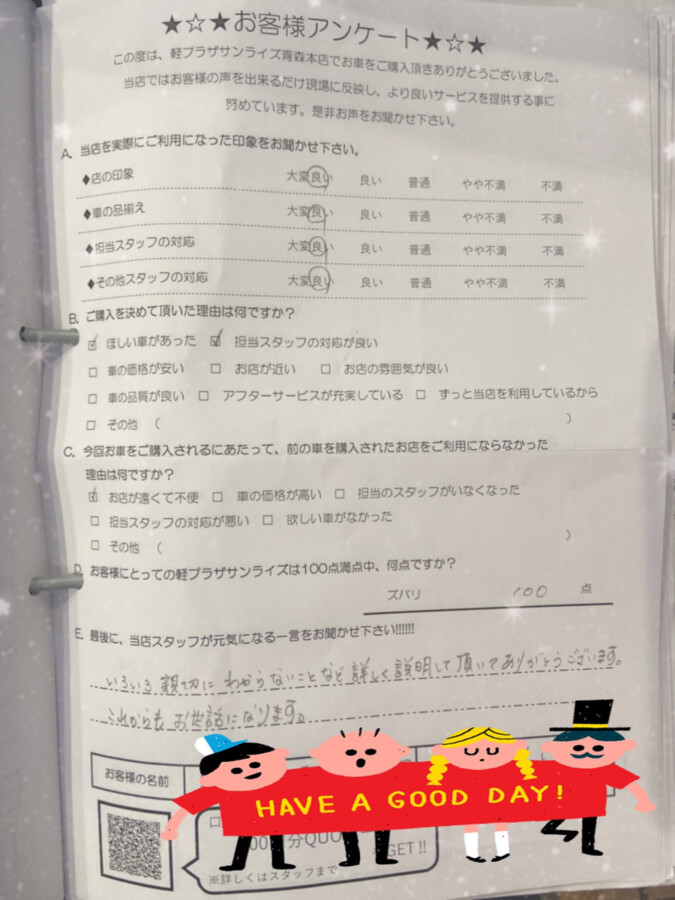 ★☆★お客様アンケート★☆★
この度は、軽プラザサンライズ青森本店でお車をご購入頂きありがとうございました。
当店ではお客様の声を出来るだけ現場に反映し、より良いサービスを提供する事に
努めています。是非お声をお聞かせ下さい。
A. 当店を実際にご利用になった印象をお聞かせ下さい。
◆店の印象 大変良い 良い 普通 やや不満 不満
◆車の品揃え 大変良い 良い 普通 やや不満 不満
◆担当スタッフの対応 大変良い 良い 普通 やや不満 不満
◆その他スタッフの対応 大変良い 良い 普通 やや不満 不満
B. ご購入を決めて頂いた理由は何ですか？
☑ ほしい車があった ☑ 担当スタッフの対応が良い
□ 車の価格が安い □ お店が近い □ お店の雰囲気が良い
□ 車の品質が良い □ アフターサービスが充実している □ ずっと当店を利用しているから
□ その他 （ ）
C. 今回お車をご購入されるにあたって、前の車を購入されたお店をご利用にならなかった
理由は何ですか？
☑ お店が遠くて不便 □ 車の価格が高い □ 担当のスタッフがいなくなった
□ 担当スタッフの対応が悪い □ 欲しい車がなかった
□ その他 （ ）
D. お客様にとっての軽プラザサンライズは100点満点中、何点ですか？
ズバリ 100 点
E. 最後に、当店スタッフが元気になる一言をお聞かせ下さい!!!!!!
いろいろ親切にわからないことなど詳しく説明して頂いてありがとうございます。
これからもお世話になります。
お客様の名前
HAVE A GOOD DAY!
分QUO
GET!!
※詳しくはスタッフまで